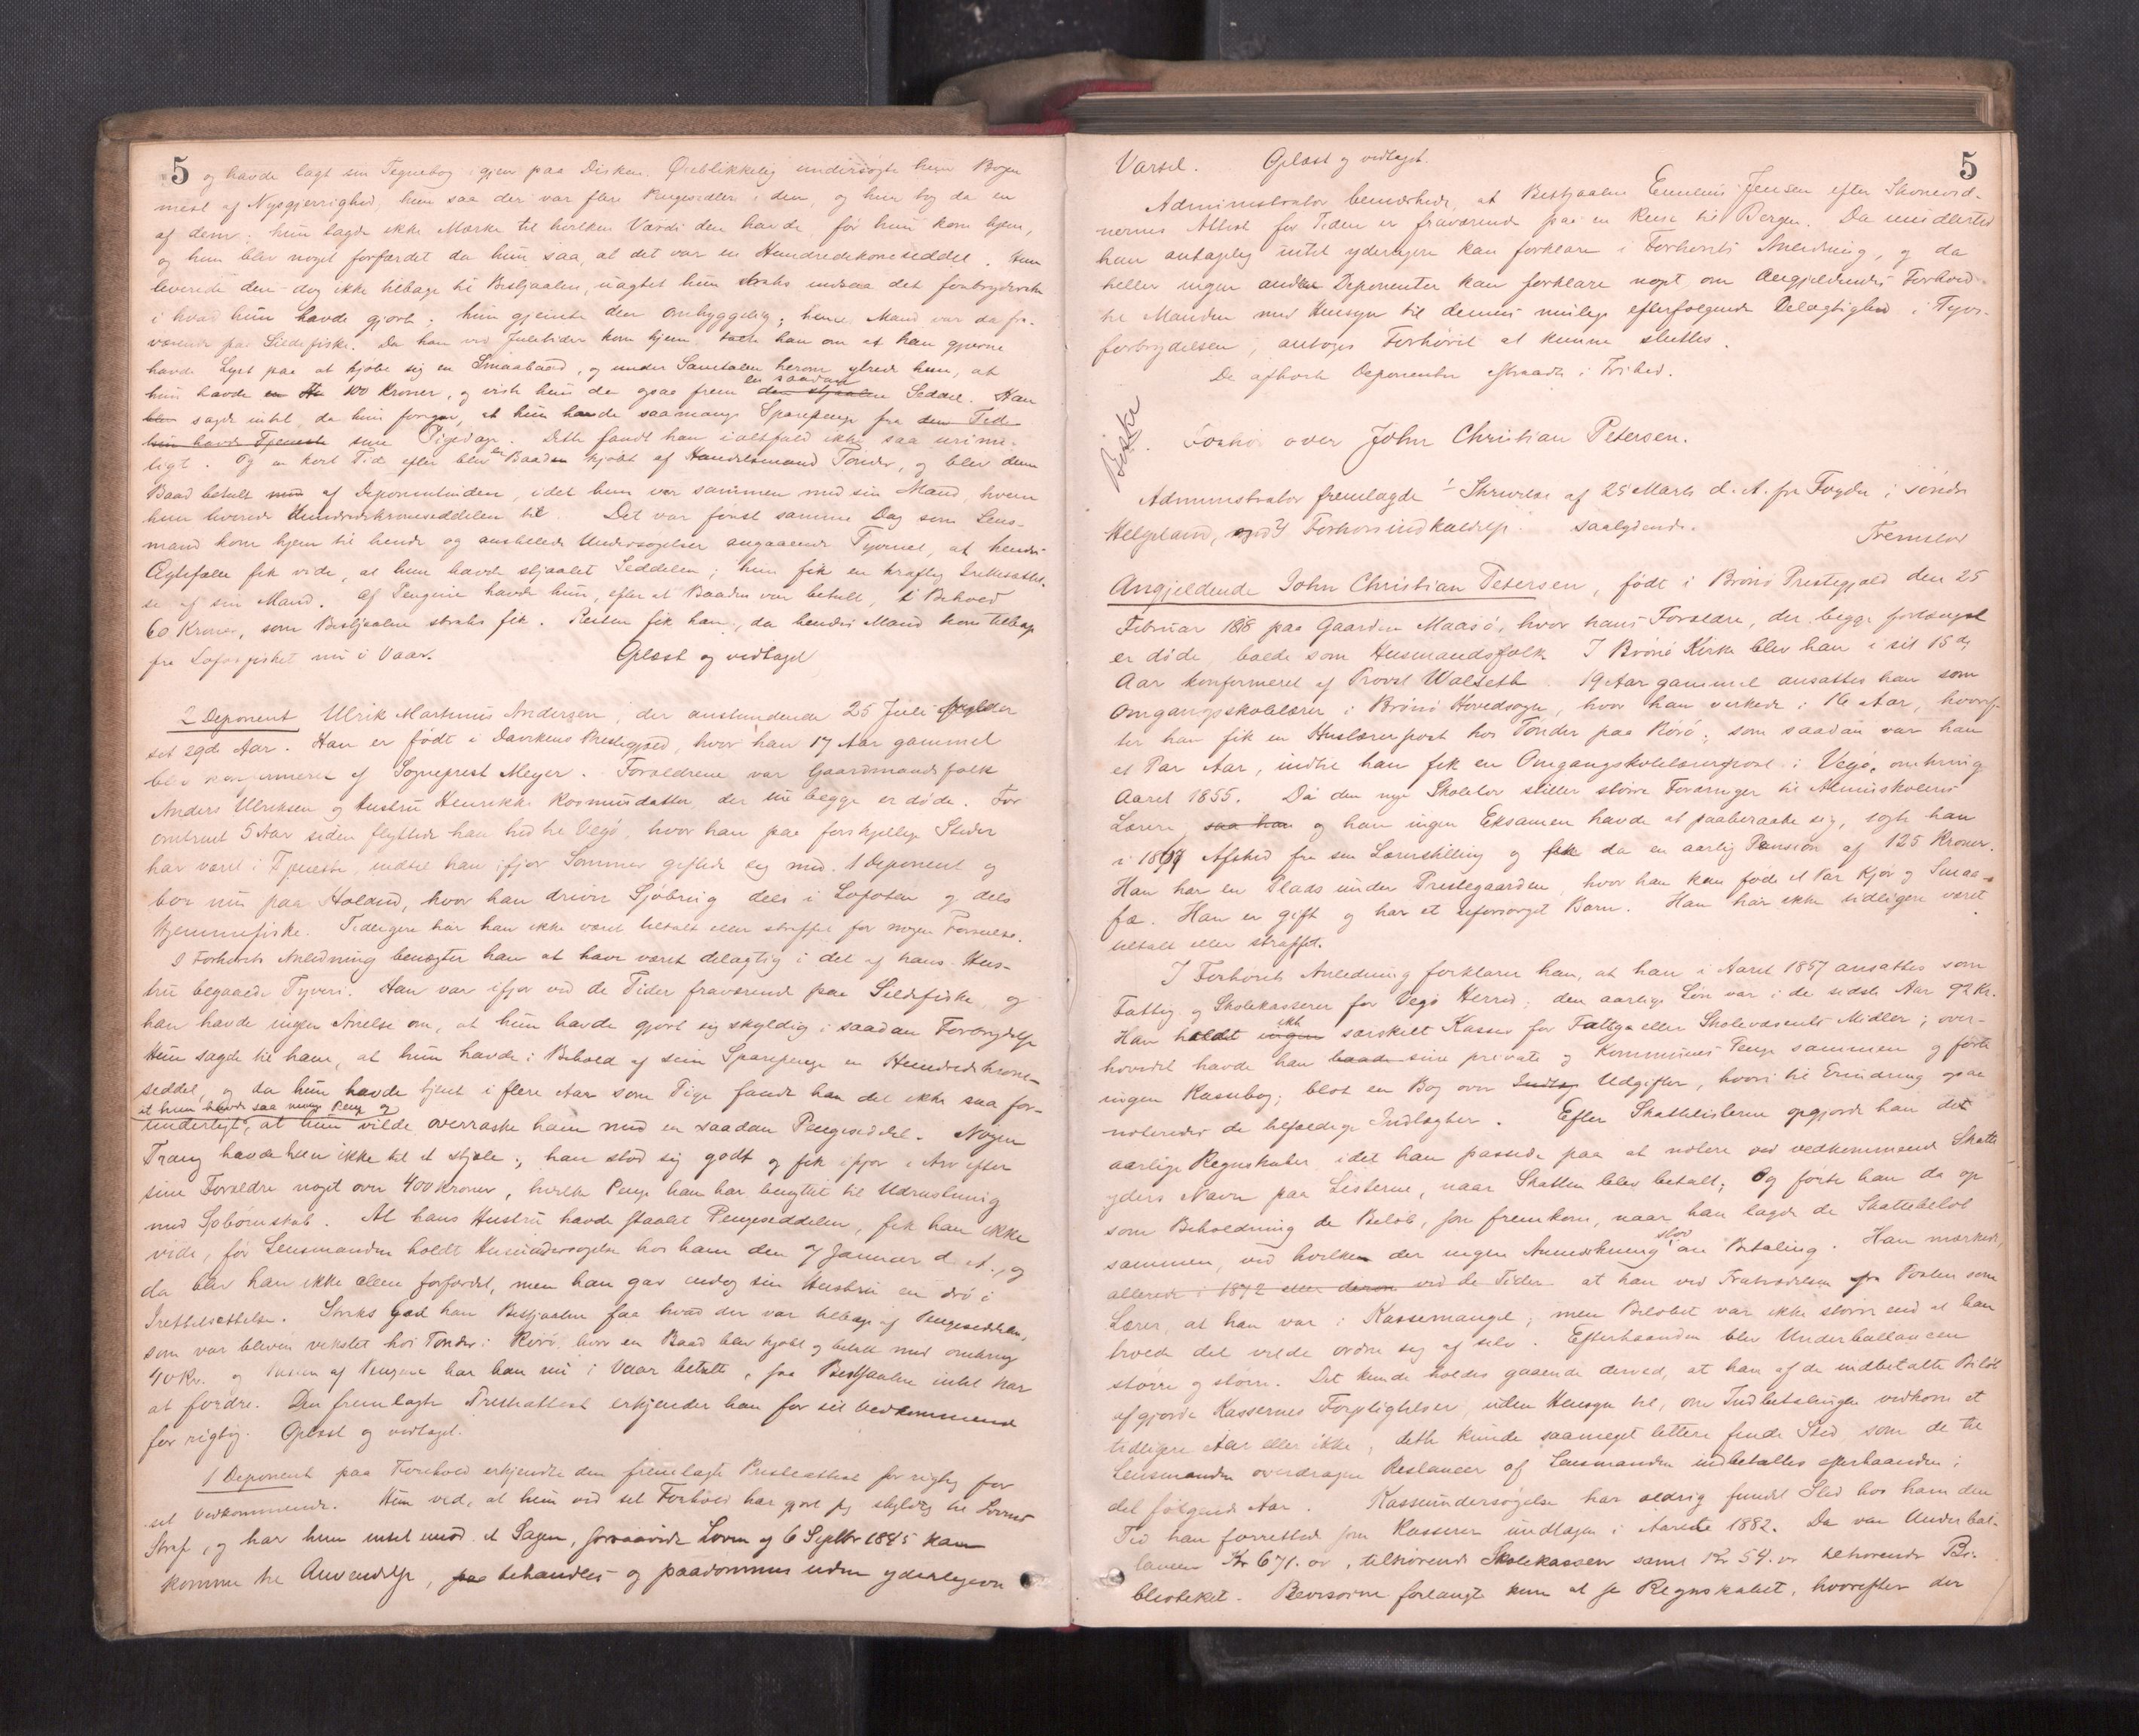 5
og havde lagt sin Tegnebog igjen paa Disken. Øieblikkelig undersøgte hun Bogen
mest af Nysgjerrighed; hun saa der var flere Pengesedler i den, og hun tog da en
af dem; hun lagde ikke Mærke til hvilken Værdi den havde, før hun kom hjem,
og hun blev noget forfærdet da hun saa, at det var en Hundredekroneseddel. Hun
leverede den dog ikke tilbage til Bestjaalne, uagtet hun straks indsaa det forbryderske
i hvad hun havde gjort; hun gjemte den omhyggelig; hendes Mand var da fra-
værende paa Sildefiske. Da han ved Juletider kom hjem talte han om at han gjerne
havde Lyst paa at kjøbe sig en Smaabaad, og under Samtalen herom ytrede hun, at
hun havde 100 Kroner, og viste hun da ogsaa frem en saadan Seddel. Han
sagde intet, da hun foregav, at hun havde saamange Sparepenge fra den Tid
hun havde Tjeneste sine Pigedage. Dette fandt han ialtfald ikke saa urime-
ligt. Og en kort Tid efter blev en Baad kjøbt af Handelsmand Tonder, og blev denne
Baad betalt af Deponentinden, idet hun var sammen med sin Mand, hvem
hun leverede Hundredekroneseddelen til. Det var først samme Dag som Lens-
mand kom hjem til hende og anstillede Undersøgelser angaaende Tyveriet, at hendes
Ægtefælle fik vide, at hun havde stjaalet Seddelen; hun fik en kraftig Irettesættel-
se af sin Mand. Af Pengene havde hun, efter at Baaden var betalt, i Behold
60 Kroner, som Bestjaalne straks fik. Resten fik han, da hendes Mand kom tilbage
fra Lofotfisket nu i Vaar. Oplæst og vedtaget
2 Deponent Ulrik Martinus Andersen, der anstundende 25 Juli fylder
sit 29de Aar. Han er født i Davikens Prestegjæld, hvor han 17 Aar gammel
blev konfirmeret af Sogneprest Meyer. Forældrene var Gaardmandsfolk
Anders Ulriksen og Hustru Henrikke Rasmusdatter, der nu begge er døde. For
omtrent 5 Aar siden flyttede han hid til Vegø, hvor han paa forskjellige Steder
har været i Tjeneste, indtil han ifjor Sommer giftede sig med 1 Deponent og
bor nu paa Holand, hvor han driver Sjøbrug dels i Lofoten og dels
Hjemmefiske. Tidligere har han ikke været tiltalt eller straffet for nogen Forseelse.
I Forhørets Anledning benægter han at have været delagtig i det af hans Hus-
tru begaaede Tyveri. Han var ifjor ved de Tider fraværende paa Sildfiske, og
han havde ingen Anelse om, at hun havde gjort sig skyldig i saadan Forbrydelse
Hun sagde til ham, at hun havde i Behold af sine Sparepenge en Hundredekrone-
seddel, og da hun havde tjent i flere Aar som Pige fandt han det ikke saa for-
at hun havde saa mange Penge og
underligt, at hun vilde overraske ham med en saadan Pengeseddel. Nogen
Trang havde hun ikke til at stjæle; han stod sig godt og fik ifjor i Arv efter
sine Forældre noget over 400 Kroner, hvilke Penge han har benyttet til Udrustning
med Sjøbrugskab. At hans Hustru havde stjaalet Pengeseddelen, fik han ikke
vide, før Lensmanden holdt Husundersøgelse hos ham den 7 Januar d. A., og
da blev han ikke alene forfærdet, men han gav endog sin Hustru en drøi
Irettesættelse. Straks gad han Bestjaalne faa hvad der var tilbage af Pengeseddelen,
som var bleven vekslet hos Tonder i Rørø, hvor en Baad blev kjøbt og betalt med omkring
40 Kr. og Resten af Pengene har han nu i Vaar betalt, saa Bestjaalne intet har
at fordre. Den fremlagte Presteattest erkjender han for sit Vedkommende
for rigtig. Oplæst og vedtaget.
1 Deponent paa Forehold erkjendte den fremlagte Presteattest for rigtig for
sit Vedkommende. Hun ved, at hun ved sit Forhold har gjort sig skyldig til Lovens
Straf, og har hun intet imod at Sagen, forsaavidt Loven af 6 Septbr 1845 kan
komme til Anvendelse, behandles og paadømmes uden yderligere
5
Varsel. Oplæst og vedtaget.
Administrator bemærkede, at Bestjaalne Emelius Jensen efter Stævnevid-
nernes Attest for Tiden er fraværende paa en Reise til Bergen. Da imidlertid
han antagelig intet yderligere kan forklare i Forhørets Anledning, og da
heller ingen andre Deponenter kan forklare noget om Angjeldendes Forhold
til Manden med Hensyn til dennes mulige efterfølgende Delagtighed i Tyvs-
forbrydelsen, antoges Forhøret at kunne sluttes.
De afhørte Deponenter aftraadte i Frihed.
Forhør over John Christian Petersen.
Administrator fremlagde 1 Skrivelse af 25 Marts d. A. fra Fogden i søndre
Helgeland, og 2 Forhørsindkaldelse. saalydende.
Fremstod
Angjeldende John Christian Petersen, født i Brønø Prestegjæld den 25
Februar 1818 paa Gaarden Maasø, hvor hans Forældre, der begge forlængst
er døde, boede som Husmandsfolk. I Brønø Kirke blev han i sit 15de
Aar konfirmeret af Provst Walseth. 19 Aar gammel ansattes han som
Omgangsskolelærer i Brønø Hovedsogn, hvor han virkede i 16 Aar, hvoref-
ter han fik en Huslærerpost hos Tonder paa Rørø; som saadan var han
et Par Aar, indtil han fik en Omgangsskolelærerpost i Vegø, omkring
Aaret 1855. Da den nye Skolelov stiller større Fordringer til Almueskolens
Lærere, saa han og han ingen Eksamen havde at paaberaabe sig, søgte han
i 1869 Afsked fra sin Lærerstilling og fik da en aarlig Pension af 125 Kroner.
Han har en Plads under Prestegaarden, hvor han kan føde et Par Kjør og Smaa-
fæ. Han er gift og har et uforsørget Barn. Han har ikke tidligere været
tiltalt eller straffet.
I Forhørets Anledning forklarer han, at han i Aaret 1857 ansattes som
Fattig og Skolekasserer for Vegø Herred; den aarlige Løn var i de sidste Aar 92 Kr.
Han holdt ikke særskilt Kasser for Fattiges eller Skolevæsenets Midler; over-
hovedet havde han baade sine private og Kommunens Penge sammen og førte
ingen Kassebog; blot en Bog over Indtæg Udgifter, hvori til Erindring ogsaa
noteredes de tilfældige Indtægter. Efter Skattelisterne opgjorde han det
aarlige Regnskaber, idet han passede paa at notere ved vedkommende Skatte
yders Navn paa Listerne, naar Skatten blev betalt; og førte han da op
som Beholdning de Beløb, som fremkom, naar han lagde de Skattebeløb
sammen, ved hvilken der ingen Anmerkning stod om Betaling. Han mærkede,
allerede i 1872 eller deron ved de Tider at han ved Fratrædelsen fra Posten som
Lærer, at han var i Kassemangel; men Beløbet var ikke større end at han
troede det vilde ordne sig af selv. Efterhaanden blev Underballancen
større og større. Det kunde holdes gaaende derved, at han af de indbetalte Beløb
afgjorde Kassernes Forpligtelser, uden Hensyn til, om Indbetalingen vedkom et
tidligere Aar eller ikke; dette kunde saameget lettere finde Sted, som de til
Lensmanden overdragne Restancer af Lensmanden indbetaltes efterhaanden i
det følgende Aar. Kasseundersøgelse har aldrig fundet Sted hos ham den
Tid han forrettede som Kasserer undtagen i Aaret 1882. Da var Underbal-
lancen Kr 671. ør, tilhørende Skolekassen samt 12 Kr 54. ør tilhørende Bi-
blioteket. Revisorerne forlangte kun at se Regnskabet, hvorefter der